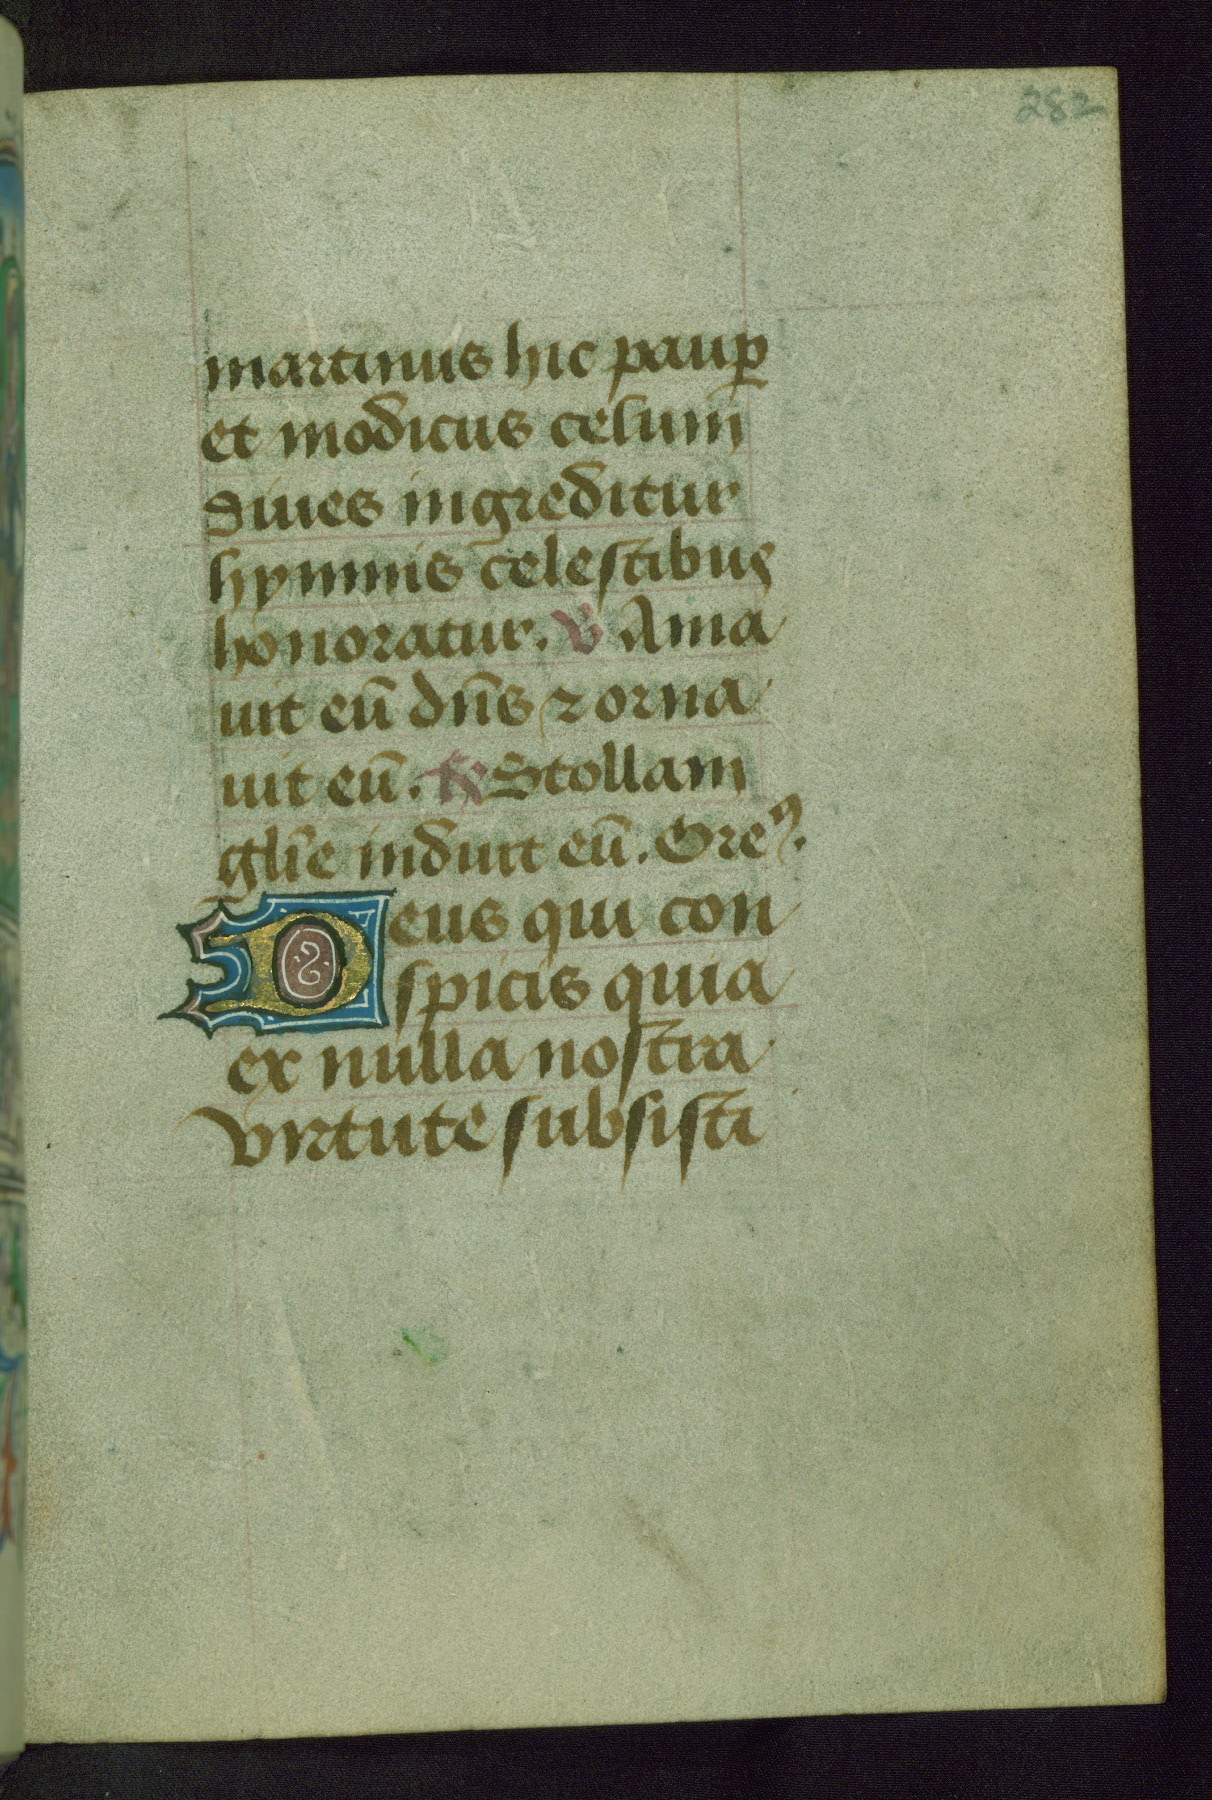 282
martinus hic paup̱
et modicus celum
diues ingreditur
hymnis celestibus
honoratur. ℣ Ama
uit eū dn̄s ⁊ orna
uit eū. ℟ Stollam
glīe induit eū. Oreꝰ.
Deus qui con
spicis quia
ex nulla nostra
virtute subsisti